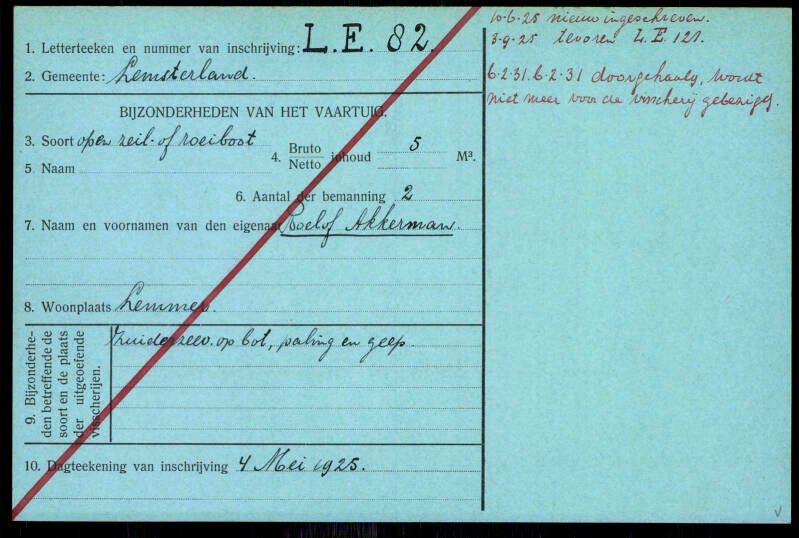 1. Letterteeken en nummer van inschrijving: L.E. 82.
2. Gemeente: Lemsterland.
BIJZONDERHEDEN VAN HET VAARTUIG.
3. Soort open zeil- of roeiboot
4. Bruto Netto inhoud 5 M³.
5 Naam
6. Aantal der bemanning 2
7. Naam en voornamen van den eigenaar Roelof Akkerman.
8. Woonplaats Lemmer.
9. Bijzonderhe-
den betreffende de
soort en de plaats
der uitgeoefende
visscherijen.
Zuiderzee op bot, paling en geep.
10. Dagteekening van inschrijving 4 Mei 1925.
10-6-25 nieuw ingeschreven.
3-9-25 tevoren L.E. 121.
6-2-31. 6-2-31 doorgehaald, wordt
niet meer voor de visscherij gebezigd.